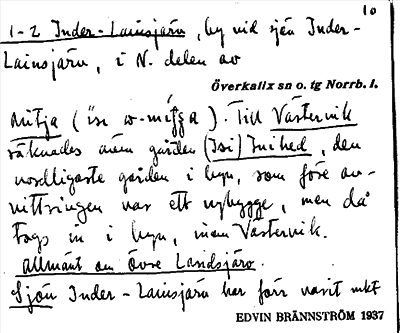 10
1-2 Inder-Lainsjärv, by vid sjön Inder-
Lainsjärv, i N. delen av
Överkalix sn o. tg Norrb. l.
Till Västervik
räknades även gården (Isi) Inihed, den
nordligaste gården i byn, som före av-
vittringen var ett nybygge, men då
togs in i byn, inom Västervik.
Allmänt om Övre Landsjärv.
Sjön Inder-Lainsjärv har förr varit mkt
EDVIN BRÄNNSTRÖM 1937